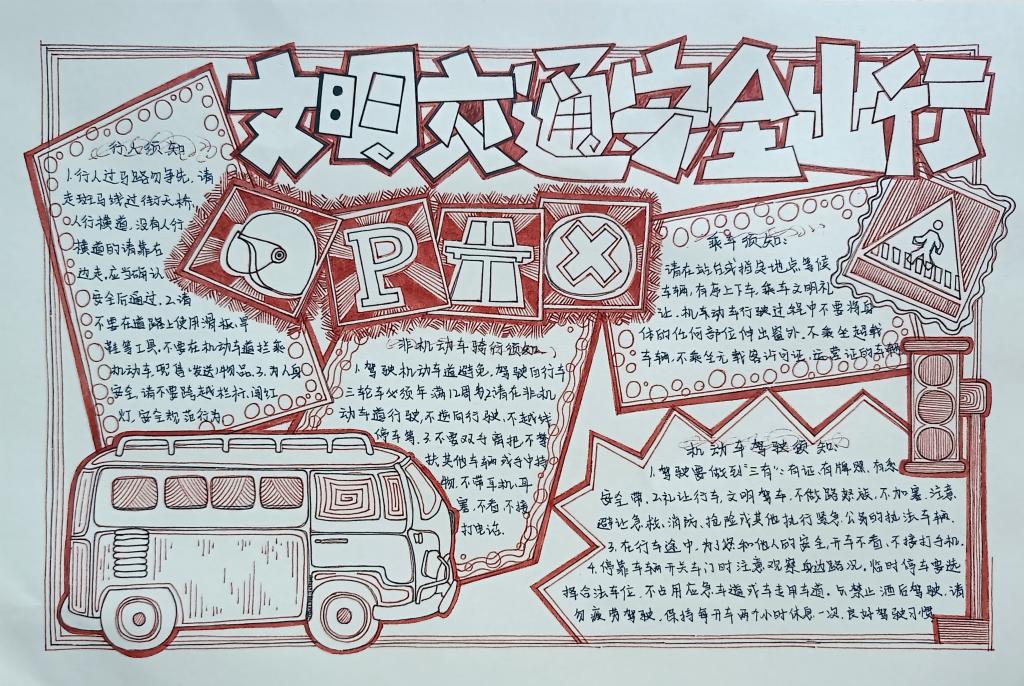 文明交通安全出行
行人须知
1.行人过马路勿争先,请
走斑马线过街天桥,
人行横道,没有人行
横道的请靠右
边走,应当确认
安全后通过.2.请
不要在道路上使用滑板,旱
鞋等工具,不要在机动车道拦乘
机动车,兜售、发送物品.3.为人身
安全,请不要跨越栏杆,闯红
灯,安全规范行为
P
非机动车骑行须知
1.驾驶机动车道避免,驾驶自行车
三轮车必须年满12周岁2.请在非机
动车道行驶,不逆向行驶,不越线
停车等.3.不要双手离把不攀
扶其他车辆或手中持
物,不带耳机,耳
塞,不看,不接
打电话.
乘车须知:
请在站台或指定地点等候
车辆,有序上下车,乘车文明礼
让,机车动车行驶过程中不要将身
体的任何部位伸出窗外,不乘坐超载
车辆,不乘坐无载客许可证,运营证的车辆
机动车驾驶须知
1.驾驶要做到“三有”:有证,有牌照,有系
安全带,2.礼让行车,文明驾车,不做路怒族,不加塞,注意
避让急救,消防,抢险或其他执行紧急公务的执法车辆.
3.在行车途中,为了您和他人的安全,开车不看,不接打手机.
4.停靠车辆开关车门时注意观察身边路况,临时停车要选
择合法车位,不占用应急车道或车专用车道.5.禁止酒后驾驶,请
勿疲劳驾驶,保持每开车两个小时休息一次,良好驾驶习惯